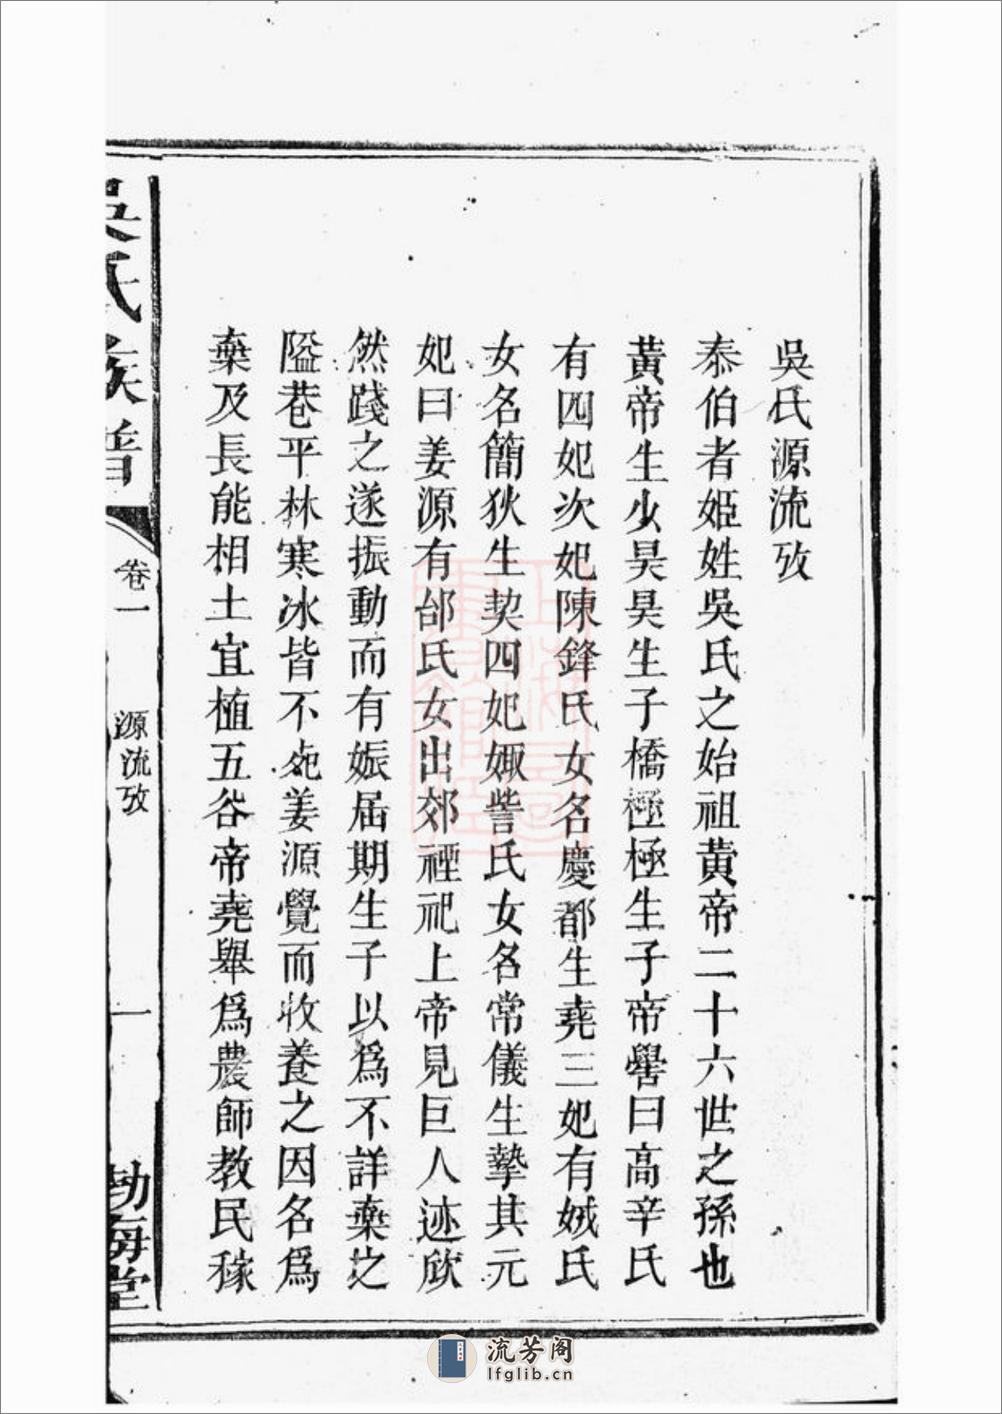 吳氏源流攷
泰伯者姬姓吳氏之始祖黃帝二十六世之孫也
黃帝生少昊昊生子橋極極生子帝嚳曰高辛氏
有四妃次妃陳鋒氏女名慶都生堯三妃有娀氏
女名簡狄生契四妃娵訾氏女名常儀生摯其元
妃曰姜源有邰氏女出郊禋祀上帝見巨人迹欣
然踐之遂振動而有娠屆期生子以為不詳棄之
隘巷平林寒冰皆不死姜源覺而收養之因名為
棄及長能相土宜植五谷帝堯舉為農師教民稼
吳氏族譜
卷一
源流攷
一
勃海堂
流芳阁
lfglib.cn